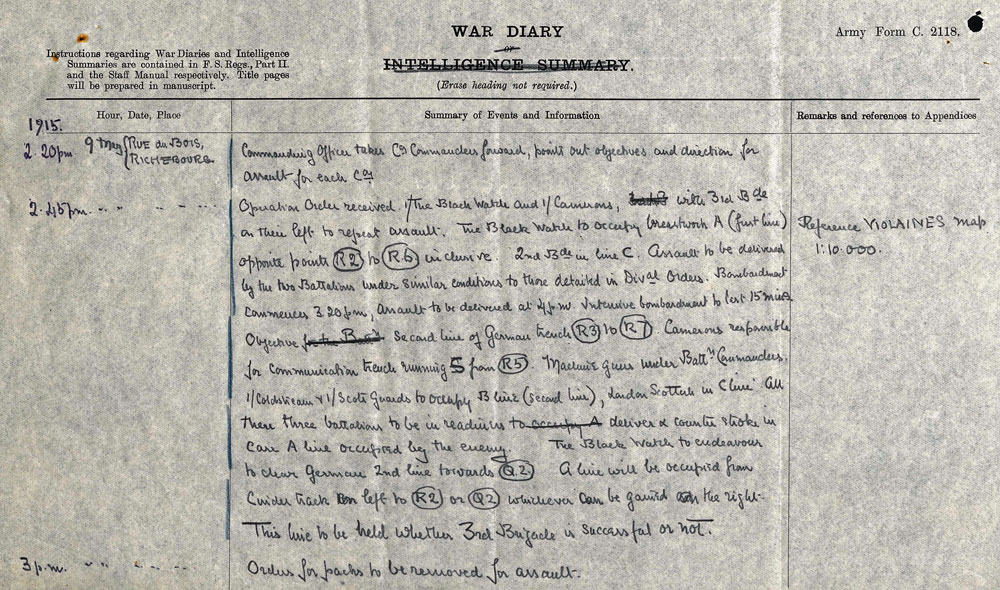 WAR DIARY
or
INTELLIGENCE SUMMARY.
(Erase heading not required.)
Army Form C. 2118.
Instructions regarding War Diaries and Intelligence
Summaries are contained in F. S. Regs., Part II.
and the Staff Manual respectively. Title pages
will be prepared in manuscript.
Hour, Date, Place
Summary of Events and Information
Remarks and references to Appendices
1915.
2.20pm 9 May RUE du BOIS,
RICHEBOURG
Commanding Officer takes Coy Commanders forward, points out objectives and direction for
assault for each Coy
2.45pm. " " " " "
Operation Order received. 1/The Black Watch and 1/Camerons, with 3rd Bde
on their left to repeat assault. The Black Watch to occupy breastwork A (first line)
opposite points R2 to R6 inclusive. 2nd Bde in line C. Assault to be delivered
by the two Battalions under similar conditions to those detailed in Dival Orders. Bombardment
commences 3.20pm, assault to be delivered at 4pm. Intensive bombardment to last 15 mins
Objective for the second line of German trench R3 to R7. Camerons responsible
for communication trench running S from R5. Machine Guns under Battn Commanders.
1/Coldstream & 1/Scots Guards to occupy B line (second line), London Scottish in C line. All
these three battalions to be in readiness to occupy A deliver a counter stroke in
case A line occupied by the enemy. The Black Watch to endeavour
to clear German 2nd line towards Q.2. A line will be occupied from
Cinder track on left to R2 or Q2 whichever can be gained on the right.
This line to be held whether 3rd Brigade is successful or not.
Reference VIOLAINES map
1:10.000.
3 p.m. " " " " "
Orders for packs to be removed for assault.